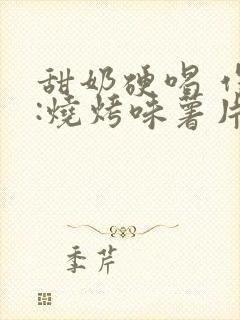 甜奶硬唱
:燒烤味薯片
季芹